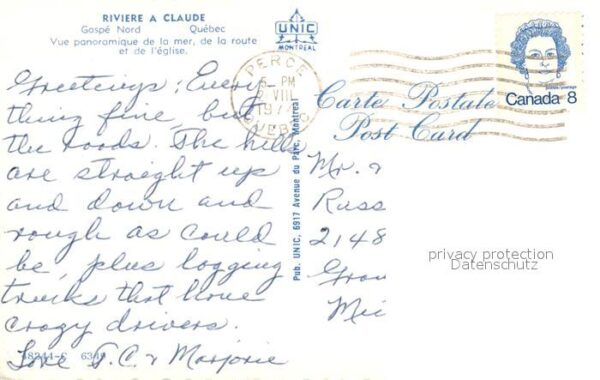 RIVIERE A CLAUDE
Gaspé Nord Québec
Vue panoramique de la mer, de la route
et de l'église.
UNIC
MONTREAL
PERCE
5 - PM
VIII
197
QUEBEC
Canada 8
Carte Postale
Post Card
Pub. UNIC, 6917 Avenue du Parc, Montreal
Greetings: Every
thing fine, but
the roads. The hills
are straight up
and down and
rough as could
be, plus logging
trucks that have
crazy drivers.
Love J.C. & Marjorie
48244-C 6349
Mr. &
Russ
2148
Gran
Mic
privacy protection
Datenschutz